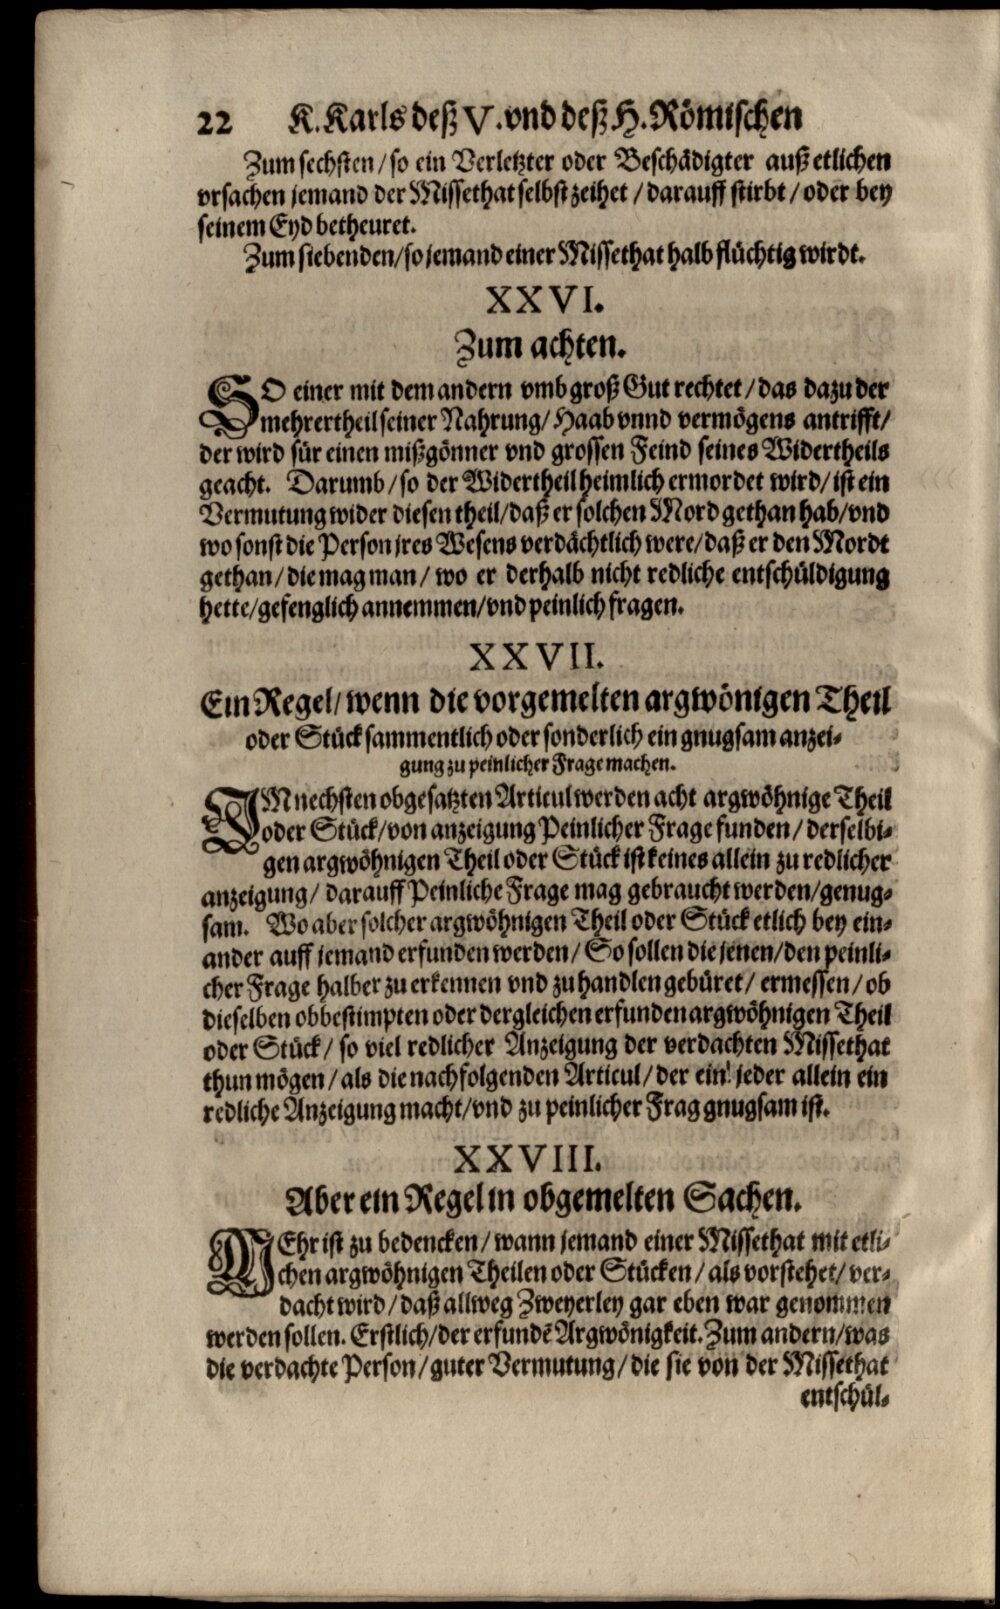 22 K. Karls deß V. vnd deß H. Römischen
Zum sechsten / so ein Verletzter oder Beschädigter auß etlichen
vrsachen jemand der Missethat selbst zeihet / darauff stirbt / oder bey
seinem Eyd betheuret.
Zum siebenden / so jemand einer Missethat halb flüchtig wirdt.
XXVI.
Zum achten.
SO einer mit dem andern vmb groß Gut rechtet / das dazu der
mehrertheil seiner Nahrung / Haab vnnd vermögens antrifft /
der wird für einen mißgönner vnd grossen Feind seines Widertheils
geacht. Darumb / so der Widertheil heimlich ermordet wird / ist ein
Vermutung wider diesen theil / daß er solchen Mord gethan hab / vnd
wo sonst die Person jres Wesens verdächtlich were / daß er den Mordt
gethan / die mag man / wo er derhalb nicht redliche entschüldigung
hette / gefenglich annemmen / vnd peinlich fragen.
XXVII.
Ein Regel / wenn die vorgemelten argwönigen Theil
oder Stück sammentlich oder sonderlich ein gnugsam anzei-
gung zu peinlicher Frage machen.
IM nechsten obgesatzten Articul werden acht argwöhnige Theil
oder Stück / von anzeigung Peinlicher Frage funden / derselbi-
gen argwöhnigen Theil oder Stück ist keines allein zu redlicher
anzeigung / darauff Peinliche Frage mag gebraucht werden / genug-
sam. Wo aber solcher argwöhnigen Theil oder Stück etlich bey ein-
ander auff jemand erfunden werden / So sollen die jenen / den peinli-
cher Frage halber zu erkennen vnd zu handlen gebüret / ermessen / ob
dieselben obbestimpten oder dergleichen erfunden argwöhnigen Theil
oder Stück / so viel redlicher Anzeigung der verdachten Missethat
thun mögen / als die nachfolgenden Articul / der ein jeder allein ein
redliche Anzeigung macht / vnd zu peinlicher Frag gnugsam ist.
XXVIII.
Aber ein Regel in obgemelten Sachen.
MEhr ist zu bedencken / wann jemand einer Missethat mit etli-
chen argwöhnigen Theilen oder Stücken / als vorstehet / ver-
dacht wird / daß allweg Zweyerley gar eben war genommen
werden sollen. Erstlich / der erfundē Argwönigkeit. Zum andern / was
die verdachte Person / guter Vermutung / die sie von der Missethat
entschül-